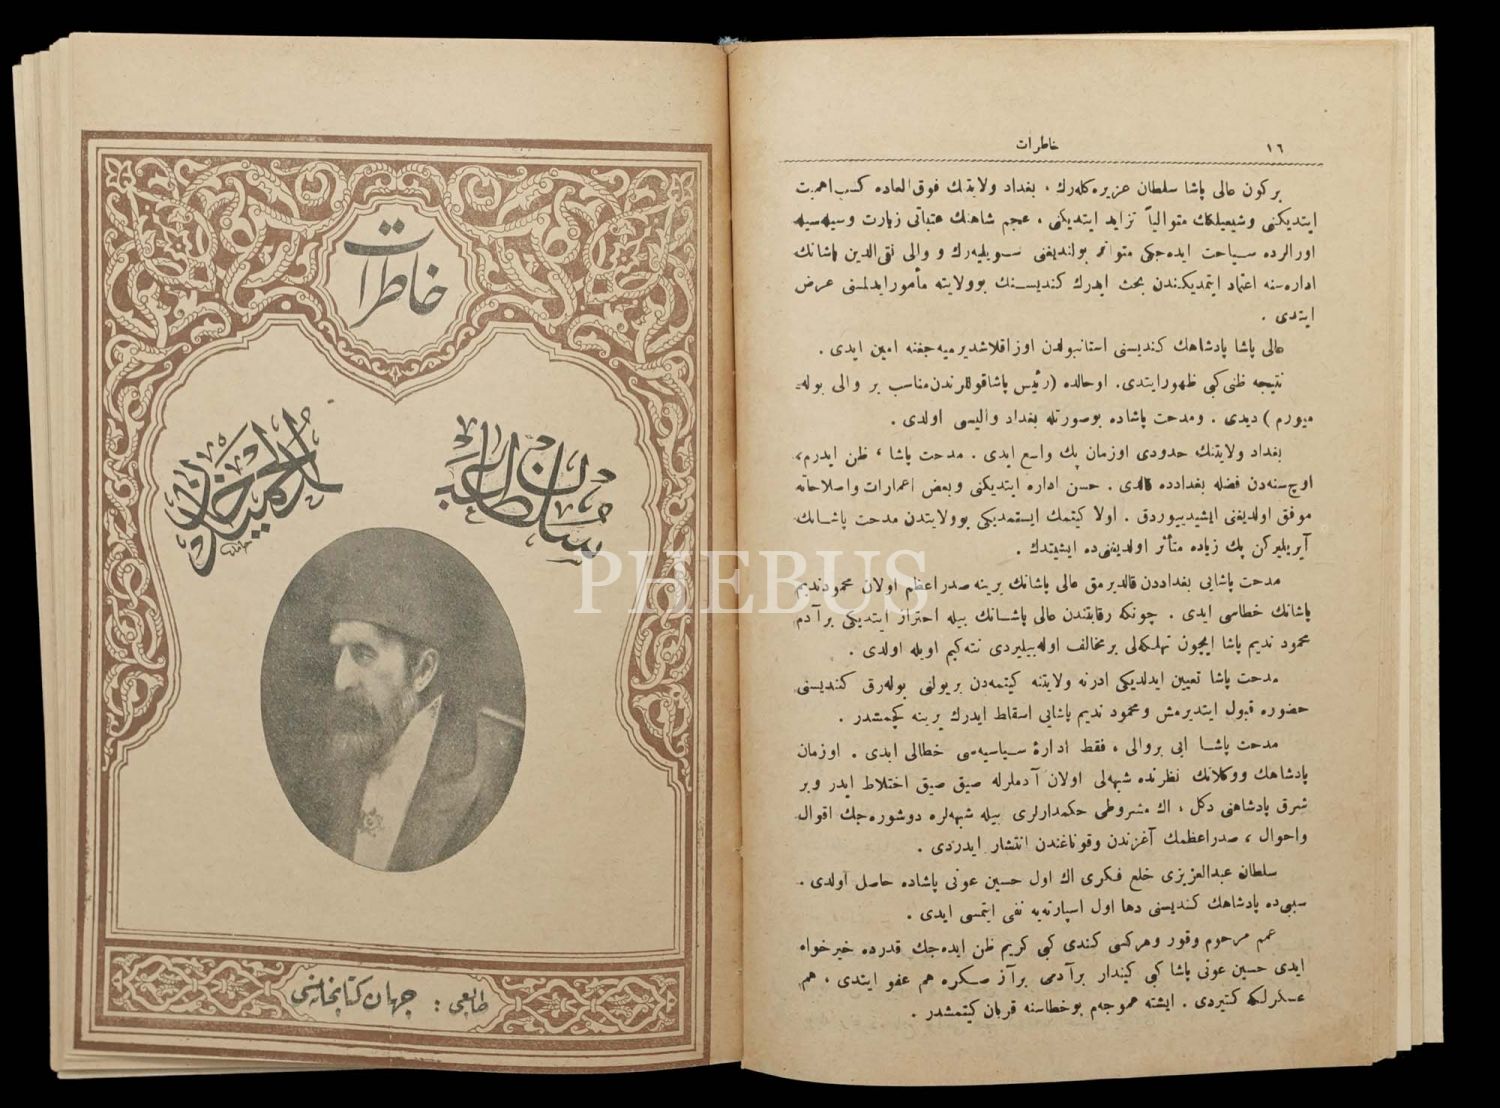 خاطرات
سلطان عبد الحميد خان
طابعی : جهان کتابخانه‌سی
PHEBUS
١٦
خاطرات
بر کون عالی پاشا سلطان عزیزه کله‌رك ، بغداد ولایتنك فوق العاده کسب اهمیت
ایتدیکنی وشیعیلکك متوالیاً تزاید ایتدیکنی ، عجم شاهنك عتباتی زیارت وسیله‌سیله
اورالرده سیاحت ایده‌جکی متواتر بولندیغنی سویلیه‌رك و والی تقی‌الدین پاشانك
اداره‌سنه اعتماد ایتمدیکندن بحث ایدرك کندیسنك بوولایته مأمور ایدلمسنی عرض
ایتدی .
عالی پاشا پادشاهك کندیسنی استانبولدن اوزاقلاشدیرمیه‌جغنه امین ایدی .
نتیجه ظنی کبی ظهور ایتدی. اوحالده (رئیس پاشا قوللرندن مناسب بر والی بوله‌-
میورم) دیدی . ومدحت پاشاده بوصورتله بغداد والیسی اولدی .
بغداد ولایتنك حدودی اوزمان پك واسع ایدی . مدحت پاشا ، ظن ایدرم،
اوچ سنه‌دن فضله بغدادده قالدی . حسن اداره ایتدیکنی وبعض اعمارات واصلاحاته
موفق اولدیغنی ایشیدییوردق . اولا کیتمك ایستمدیکی بوولایتدن مدحت پاشانك
آیریلیرکن پك زیاده متأثر اولدیغنی‌ده ایشیتدك .
مدحت پاشایی بغداددن قالدیرمق عالی پاشانك یرینه صدراعظم اولان محمود ندیم
پاشانك خطاسی ایدی . چونکه رقابتندن عالی پاشانك بیله احتراز ایتدیکی بر آدم
محمود ندیم پاشا ایچون تهلکه‌لی بر مخالف اوله‌بیلیردی نته‌کیم اویله اولدی .
مدحت پاشا تعیین ایدلدیکی ادرنه ولایتنه کیتمه‌دن بر یولنی بوله‌رق کندیسنی
حضوره قبول ایتدیرمش ومحمود ندیم پاشایی اسقاط ایدرك یرینه کچمشدر .
مدحت پاشا ایی بروالی ، فقط ادارهٔ سیاسیه‌سی خطالی ایدی . اوزمان
پادشاهك ووکلانك نظرنده شبهه‌لی اولان آدملرله صیق صیق اختلاط ایدر وبر
شرق پادشاهنی دکل ، اك مشروطی حکمدارلری بیله شبهه‌لره دوشوره‌جك اقوال
واحوال ، صدراعظمك آغزندن وقوناغندن انتشار ایدردی .
سلطان عبدالعزیزی خلع فکری اك اول حسین عونی پاشاده حاصل اولدی .
سببی‌ده پادشاهك کندیسنی دها اول اسپارته‌یه نفی ایتمسی ایدی .
عمم مرحوم وقور وهرکسی کندی کبی کریم ظن ایده‌جك قدرده خیرخواه
ایدی حسین عونی پاشا کبی کیندار برآدمی برآز صکره هم عفو ایتدی ، هم
عسکرلکه کتیردی . ایشته عموجه‌م بوخطاسنه قربان کیتمشدر .